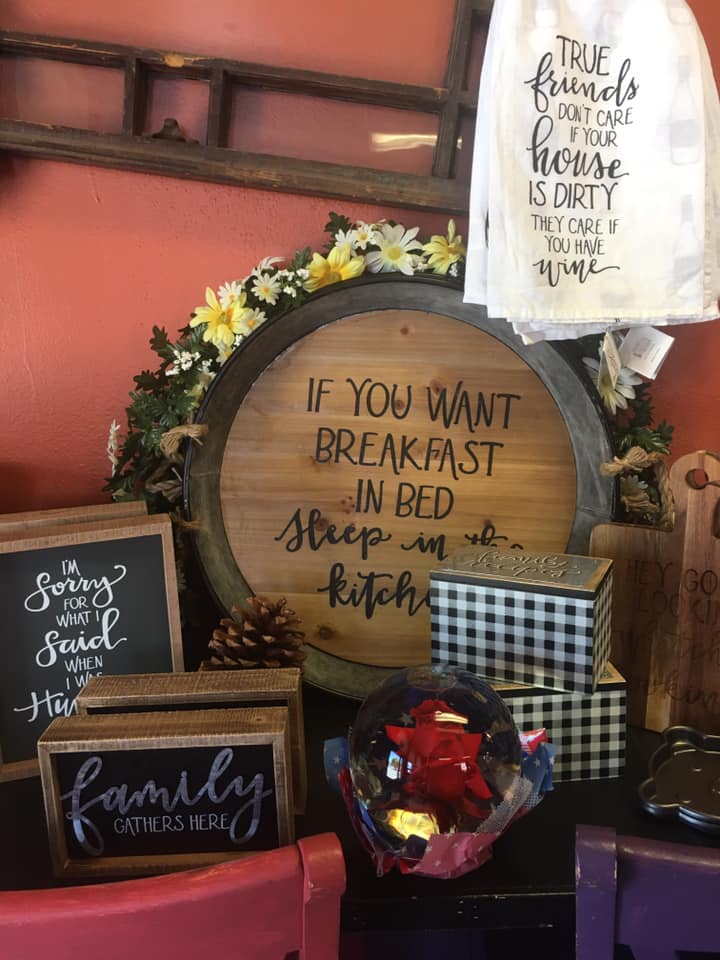 TRUE
friends
DON'T CARE
IF YOUR
house
IS DIRTY
THEY CARE IF
YOU HAVE
wine
IF YOU WANT
BREAKFAST
IN BED
Sleep in the
I'M
Sorry
FOR WHAT I
Said
WHEN
I WAS
family recipes
HEY GO
family
GATHERS HERE